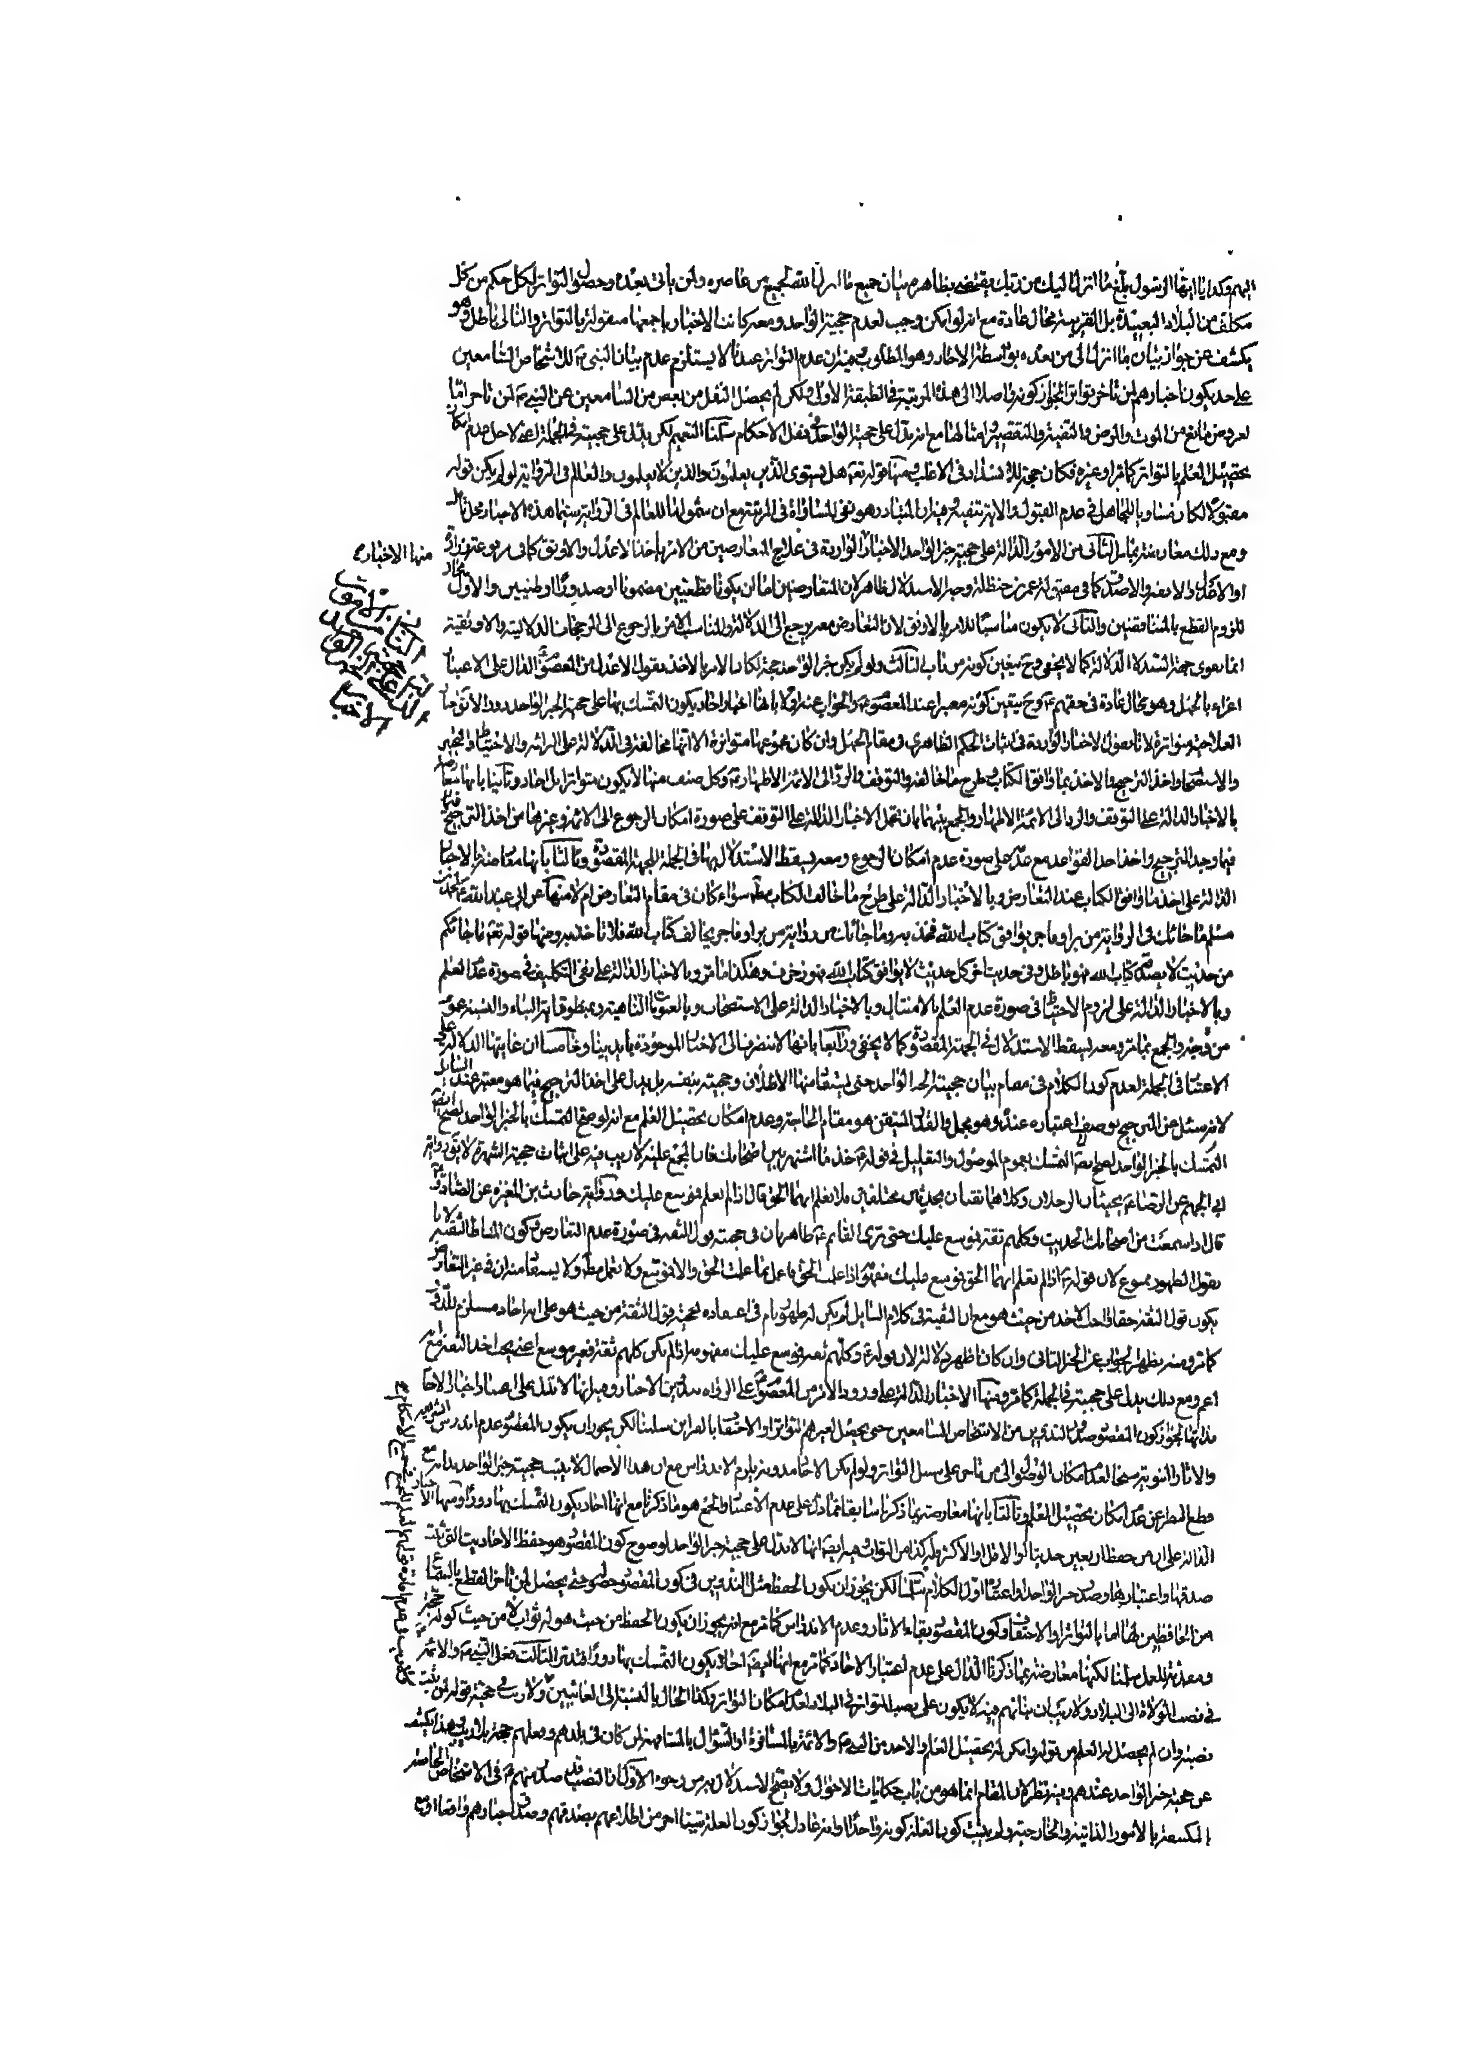 اليهم وكذا يا ايها الرسول بلغ ما انزل اليك من ربك يقتضي بظاهره بيان جميع ما انزل الله لجميع من عاصره ولمن يأتي بعده وحصول التواتر لكل حكم من كل
مكلف من البلاد البعيدة بل القريبة محال عادة مع انه لو امكن وجب لعدم حجية الواحد ومعه كانت الاخبار باجمعها منقولة بالتواتر والتالي باطل وهو
يكشف عن جواز بيان ما انزل الى من بعده بواسطة الاحاد وهو المطلوب وفيه ان عدم التواتر عندنا لا يستلزم عدم بيان النبي للاشخاص السامعين
على حد يكون اخبارهم لمن تأخر تواترا لجواز كونه واصلا الى هذه المرتبة في الطبقة الاولى ولكن لم يحصل النقل من بعض من السامعين عن النبي لمن تأخر اما
لعروض مانع من الموت والمرض والتقية والتقصير وامثالها مع انه يدل على حجية الواحد في نقل الاحكام سلمنا التعميم لكن يدل على حجيته في الجملة لاجل عدم امكان
تحصيل العلم بالتواتر كما مر او غيره فكان حجة للانسداد في الاغلب ومنها قوله تعه هل يستوي الذين يعلمون والذين لا يعلمون والعالم في الرواية لو لم يكن قوله
مقبولا لكان مساويا للجاهل في عدم القبول والاية تنفيه وفيه ان المتبادر هو نفي المساواة في المرتبة مع ان شمولها للعالم في الرواية سيما هذه الاخبار محل تأمل
ومع ذلك معارضة بما مر الثاني من الامور الدالة على حجية خبر الواحد الاخبار الواردة في علاج المتعارضين من الامر باخذ الاعدل والاوثق كما في مرفوعة زرارة
او الاعدل والافقه والاصدق كما في مقبولة عمر بن حنظلة وجه الاستدلال ظاهر لان المتعارضين اما ان يكونا قطعيين مضمونا او صدورا او ظنيين والاول محال
للزوم القطع بالمتناقضين والثاني لا يكون مناسبا للامر بالاوثق لان التعارض معه يرجع الى الدلالة والمناسب الامر بالرجوع الى المرجحات الدلالية والاوثقية
انما يقوى جهة السند لا الدلالة كما لا يخفى وح تعين كونه من باب الثالث ولو لم يكن خبر الواحد حجة لكان الامر بالاخذ بقول الاعدل من المعصوم الدال على الاعتبار
اغراء بالجهل وهو محال عادة في حقهم ع وح يتعين كونه معتبرا عند المعصوم ع والجواب عنه اولا بانها اخبار احاد يكون التمسك بها على حجية الخبر الواحد دورا لا يقال
العلاجية متواترة لانا نقول الاخبار الواردة في اثبات الحكم الظاهري ومقام الجهل وان كان مجموعها متواترة الا انها مخالفة في الدلالة على البرائة والاحتياط والتخيير
والاستصحاب واخذ الترجيح والاخذ بما وافق الكتاب وطرح ما خالفه والتوقف والرد الى الائمة الاطهار ع وكل صنف منها لا يكون متواترا بل احاد وثانيا بانها معارضة
بالاخبار الدالة على التوقف والرد الى الائمة الاطهار والجمع بينهما بان تحمل الاخبار الدالة على التوقف على صورة امكان الرجوع الى الائمة وغيرها من اخذ الترجيح فيها
فيما وجد الترجيح واخذ احد القواعد مع عدمه على صورة عدم امكان الرجوع ومعه يسقط الاستدلال بها في الجملة للجهة المقصودة وثالثا بانها معارضة بالاخبار
الدالة على اخذ ما وافق الكتاب عند التعارض وبالاخبار الدالة على طرح ما خالف الكتاب مط سواء كان في مقام التعارض ام لا منها عن ابي عبد الله ع محمد بن
مسلم ما جائك في الرواية من بر او فاجر يوافق كتاب الله فخذ به وما جائك من رواية من بر او فاجر يخالف كتاب الله فلا تأخذ به ومنها قوله تعه ما جائكم
من حديث لا يصدقه كتاب الله فهو باطل وفي حديث اخر كل حديث لا يوافق كتاب الله فهو زخرف وهكذا ما مر وبالاخبار الدالة على نفي التكليف في صورة عدم العلم
وبالاخبار الدالة على لزوم الاحتياط في صورة عدم العلم بالامتثال وبالاخبار الدالة على الاستصحاب وبالعمومات الناهية وبمنطوق اية النباء والنسبة عموم
من وجه والجمع بما مر ومعه يسقط الاستدلال في الجهة المقصودة كما لا يخفى ورابعا بانها لا تنصرف الى الاخبار الموجودة بايدينا وخامسا ان غايتها الدلالة على
الاعتبار في الجملة لعدم كون الكلام في مقام بيان حجية الخبر الواحد حتى يستفاد منها الاطلاق وحجيته بنفسه بل يدل على اخذ الترجيح فيما هو معتبر عند السائل
لانه سئل عن الترجيح بوصف اعتباره عنده وهو مجمل والقدر المتيقن هو مقام الحاجة وعدم امكان تحصيل العلم مع انه لو صح التمسك بالخبر الواحد لصح اية
التمسك بالخبر الواحد لصح ايضا التمسك بعموم الموصول والتعليل في قوله ع خذ ما اشتهر بين اصحابك فان المجمع عليه لا ريب فيه على اثبات حجية الشهرة لا يقال رواية
ابن الجهم عن الرضا ع يجيئنا الرجلان وكلاهما ثقتان بحديثين مختلفين فلا نعلم ايهما الحق قال اذا لم تعلم فموسع عليك ورواية حارث بن المغيرة عن الصادق ع
قال اذا سمعت من اصحابك الحديث وكلهم ثقة فموسع عليك حتى ترى القائم ع ظاهرتان في حجية قول الثقة في صورة عدم التعارض وكون المناط الثقة لانا
نقول الظهور ممنوع لان قوله ع اذا لم تعلم ايهما الحق فموسع عليك مفهومه اذا علمت الحق فاعمل بما علمت الحق والا فموسع ولا تعمل مط ولا يستفاد منه ان في غير التعارض
يكون قول الثقة حقا واجب الاخذ من حيث هو مع ان الثقية في كلام السائل لم يكن له ظهور تام في اعتقاده لحجية قول الثقة من حيث هو على انه احاد مستلزم للدور
كما مر ومنه يظهر الجواب عن الخبر الثاني وان كان اظهر دلالة لان قوله ع وكلهم ثقة فموسع عليك مفهومه اذا لم يكن كلهم ثقة فغير موسع اعني يجب اخذ الثقة مع انه
اعم ومع ذلك يدل على حجيته في الجملة كما مر ومنها الاخبار الدالة على ورود الامر من المعصوم ع على الرواة بتدوين الاخبار وفيه انها لا تدل على اعتبار اخبار الاحاد
بذاتها لجواز كون المقصود من التدوين من الاشخاص السامعين حتى يحصل لغيرهم التواتر او الاحتفاف بالقراين سلمنا لكن يجوز ان يكون المقصود عدم اندراس الشريعة
والاثار النبوية سيما لعدم امكان الوصول الى من تأخر على سبيل التواتر ولو لم يكن الاحاد مدونة يلزم الاندراس مع ان هذا الاحتمال لا يثبت حجية خبر الواحد بذاته مع
قطع النظر عن عدم امكان تحصيل العلم وثالثا بانها معارضة بما ذكرنا سابقا مما دل على عدم الاعتبار والجمع هو ما ذكرنا مع انها احاد يكون التمسك بها دورا ومنها الاخبار
الدالة على ان من حفظ اربعين حديثا او الاقل او الاكثر فله كذا من الثواب وفيه ايضا انها لا تدل على حجية خبر الواحد لوضوح كون المقصود هو حفظ الاحاديث التي ثبت
صدقها واعتبارها وصدق خبر الواحد واعتباره اول الكلام سلمنا لكن يجوز ان يكون الحفظ مثل التدوين في كون المقصود حصوله حتى يحصل لمن تأخر القطع بالاجتماع
من الحافظين لها اما بالتواتر او الاحتفاف وكون المقصود بقاء الاثار وعدم الاندراس كما مر مع انه يجوز ان يكون الحفظ من حيث هو له ثواب لا من حيث كونه حجة
ومعذرة للعمل سلمنا لكنها معارضة بما ذكرنا الدال على عدم اعتبار الاحاد كما مر مع انها ايضا احاد يكون التمسك بها دورا فتدبر الثالث فعل النبي ص والائمة ع
في نصب الولاة الى البلاد ولا ريب ان بيانهم فيه لا يكون على نصب التواتر في البلاد لعدم امكان التواتر وكذا الحال بالنسبة الى الغائبين ولا ريب في حجية قوله لمن ثبت
نصبه وان لم يحصل له العلم من قوله وامكن له تحصيل العلم والاخذ من النبي ص والائمة بالمسافرة او السؤال بالمشافهة لمن كان في بلدهم وفعلهم حجة بلا ريب وهذا يكشف
عن حجية خبر الواحد عندهم وفيه نظر لان المقام انما هو من باب حكايات الاحوال ولا يصح الاستدلال به من وجوه الاول ان النصب قد صدر منهم ع في الاشخاص الخاصة
المكتنفة بالامور الذاتية والخارجية ولم يثبت كون العلة كونه واحدا او انه عادل لجواز كون العلة شيئا اخر من اطلاعهم بصدقهم وصدق اخبارهم واقعا او مع
منها الاخبار